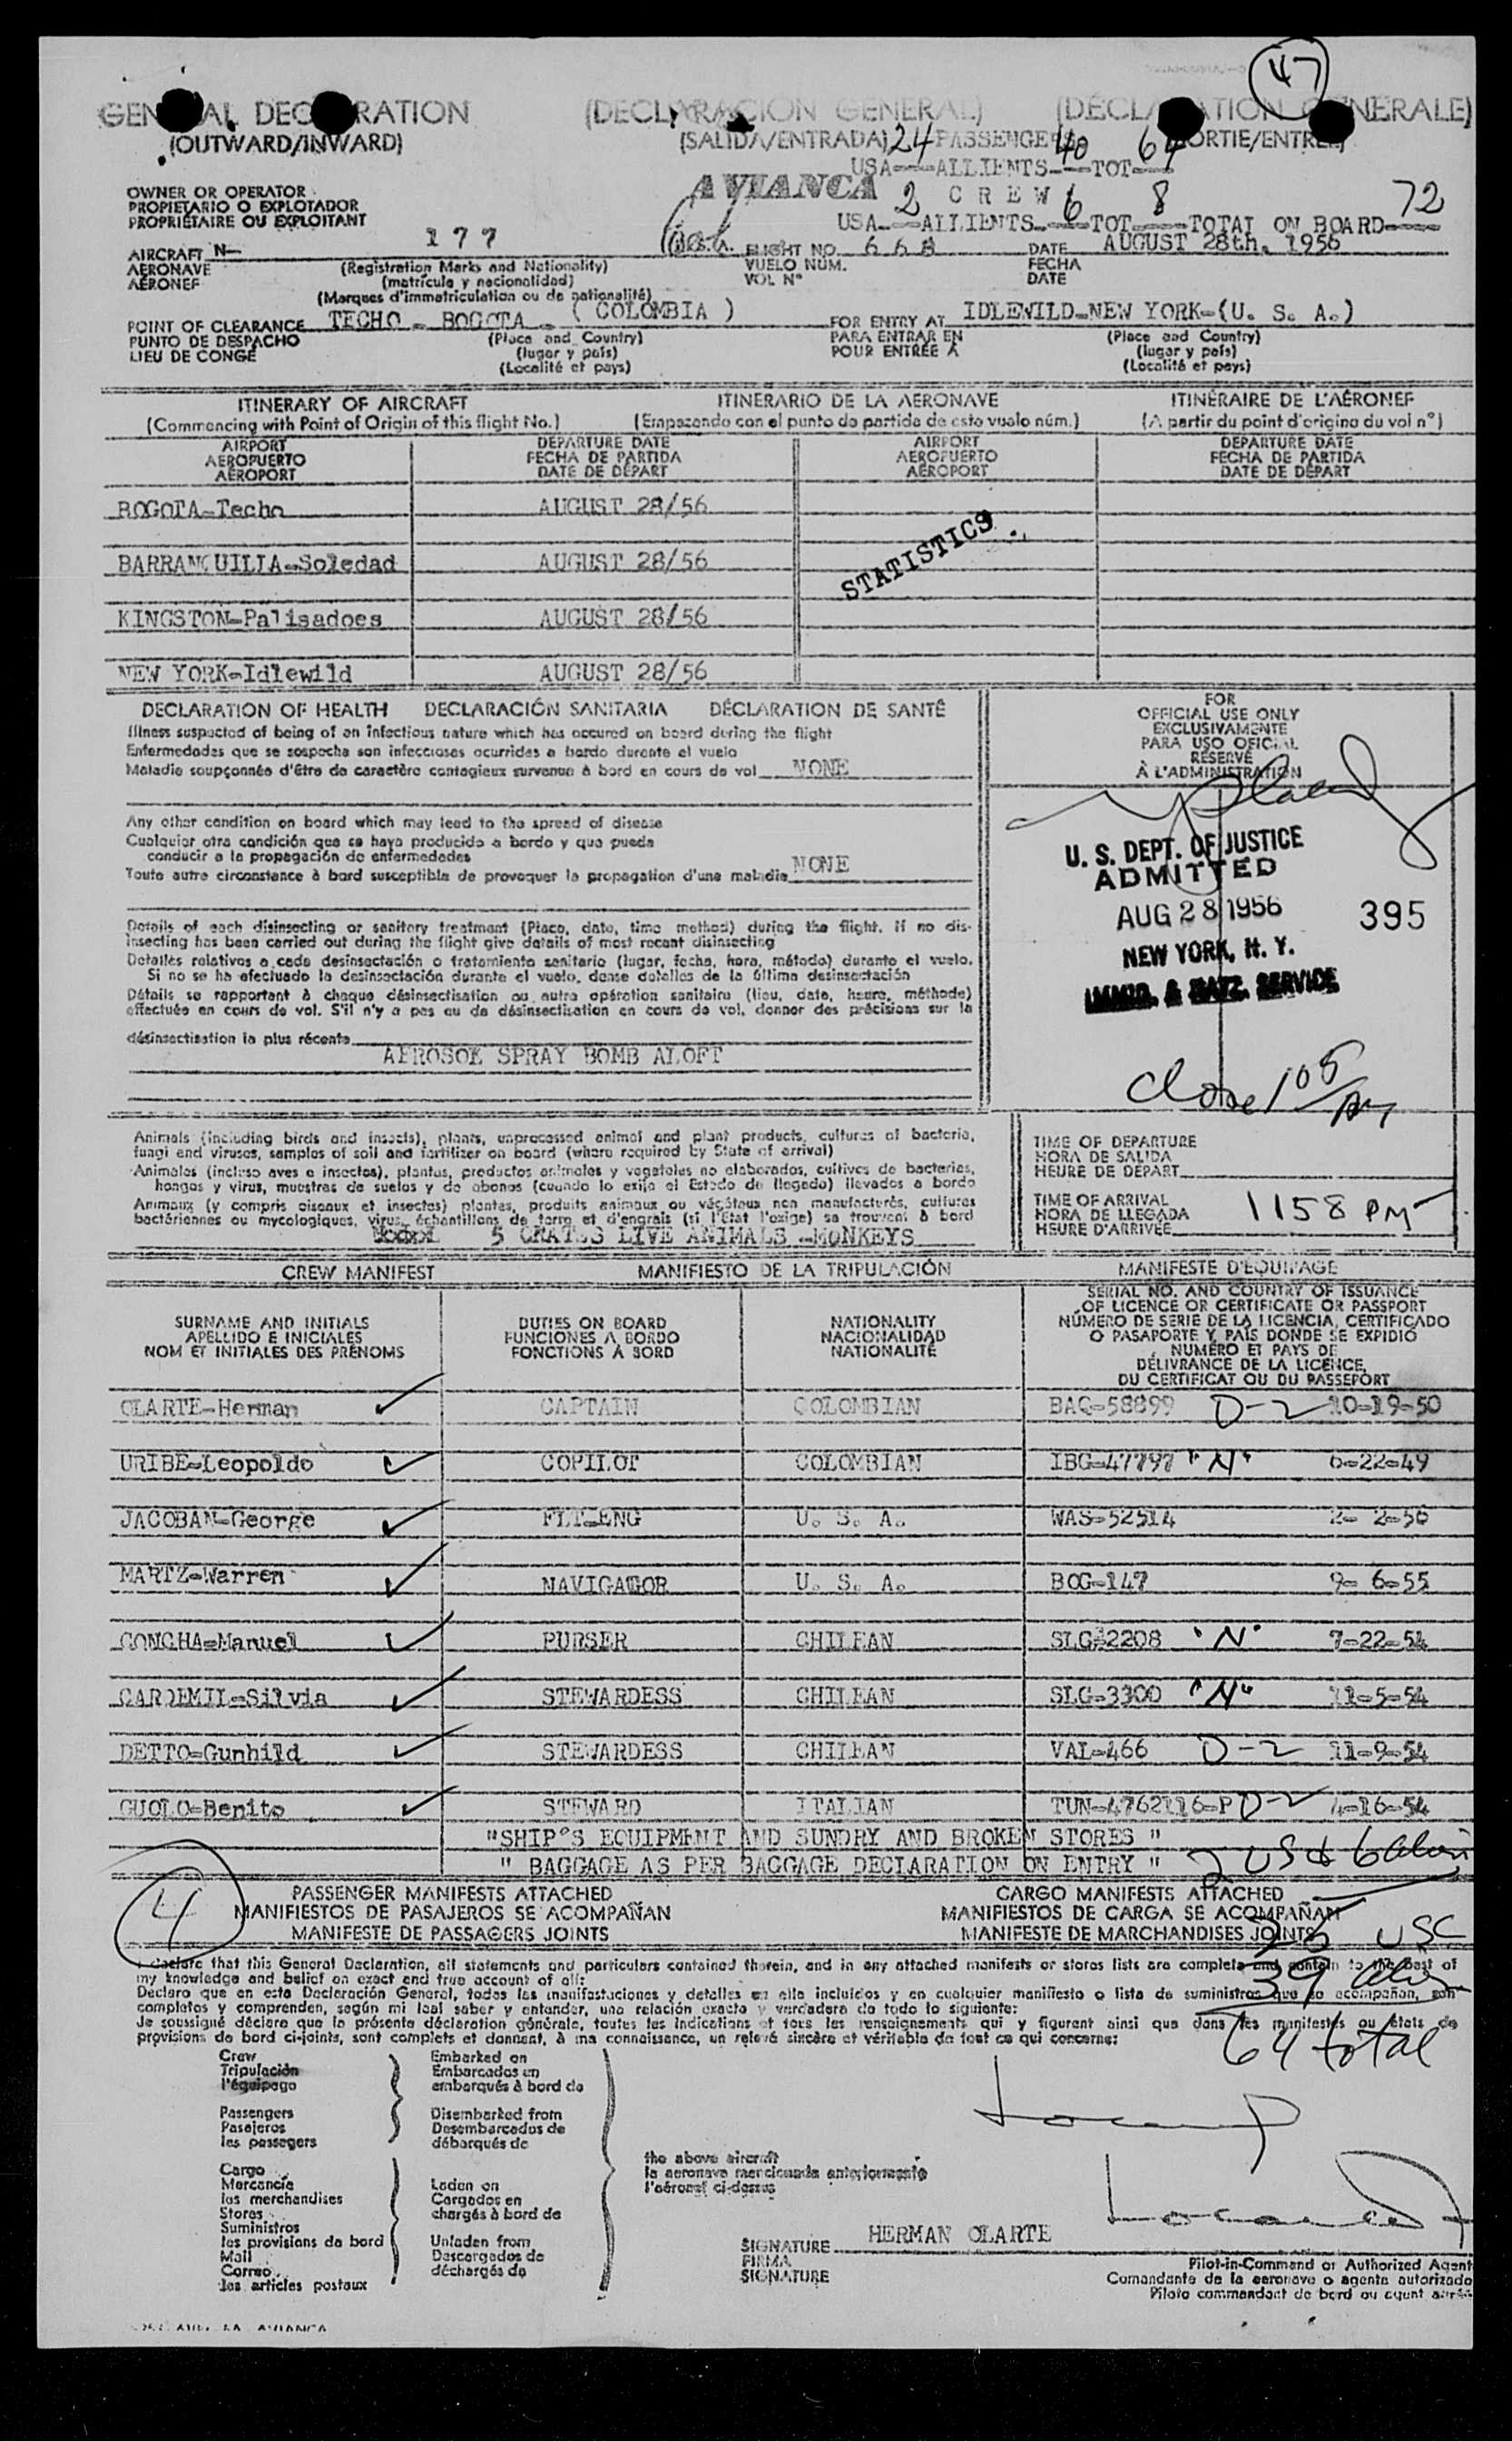 47
GENERAL DECLARATION (DECLARACION GENERAL) (DÉCLARATION GÉNÉRALE)
(OUTWARD/INWARD) (SALIDA/ENTRADA) 24 PASSENGERS 40 64 (SORTIE/ENTRÉE)
USA----ALLIENTS----TOT----
OWNER OR OPERATOR
PROPIETARIO O EXPLOTADOR
PROPRIÉTAIRE OU EXPLOITANT
AVIANCA 2 CREW 6 8 72
USA----ALLIENTS----TOT----TOTAL ON BOARD----
AIRCRAFT N- 177 FLIGHT NO. 668 DATE AUGUST 28th. 1956
AERONAVE (Registration Marks and Nationality) VUELO NÚM. FECHA
AÉRONEF (matrícula y nacionalidad) VOL N° DATE
(Marques d'immatriculation ou de nationalité)
POINT OF CLEARANCE TECHO - BOGOTA - ( COLOMBIA ) FOR ENTRY AT IDLEWILD-NEW YORK-(U. S. A.)
PUNTO DE DESPACHO (Place and Country) PARA ENTRAR EN (Place and Country)
LIEU DE CONGÉ (lugar y país) POUR ENTRÉE A (lugar y país)
(Localité et pays) (Localité et pays)
ITINERARY OF AIRCRAFT ITINERARIO DE LA AERONAVE ITINÉRAIRE DE L'AÉRONEF
(Commencing with Point of Origin of this flight No.) (Empezando con el punto de partida de este vuelo núm.) (A partir du point d'origine du vol n°)
AIRPORT DEPARTURE DATE AIRPORT DEPARTURE DATE
AEROPUERTO FECHA DE PARTIDA AEROPUERTO FECHA DE PARTIDA
AÉROPORT DATE DE DÉPART AÉROPORT DATE DE DÉPART
BOGOTA-Techo AUGUST 28/56
STATISTICS
BARRANQUILLA-Soledad AUGUST 28/56
KINGSTON-Palisadoes AUGUST 28/56
NEW YORK-Idlewild AUGUST 28/56
DECLARATION OF HEALTH DECLARACIÓN SANITARIA DÉCLARATION DE SANTÉ
Illness suspected of being of an infectious nature which has occured on board during the flight
Enfermedades que se sospecha son infecciosas ocurridas a bordo durante el vuelo
Maladie soupçonnée d'être de caractère contagieux survenue à bord en cours de vol NONE
Any other condition on board which may lead to the spread of disease
Cualquier otra condición que se haya producido a bordo y que pueda
conducir a la propagación de enfermedades
Toute autre circonstance à bord susceptible de provoquer la propagation d'une maladie NONE
Details of each disinsecting or sanitary treatment (Place, date, time method) during the flight. If no dis-
insecting has been carried out during the flight give details of most recent disinsecting
Detalles relativos a cada desinsectación o tratamiento sanitario (lugar, fecha, hora, método) durante el vuelo.
Si no se ha efectuado la desinsectación durante el vuelo, dense detalles de la última desinsectación
Détails se rapportant à chaque désinsectisation ou autre opération sanitaire (lieu, date, heure, méthode)
effectuée en cours de vol. S'il n'y a pas eu de désinsectisation en cours de vol, donner des précisions sur la
désinsectisation la plus récente
AEROSOL SPRAY BOMB ALOFT
FOR
OFFICIAL USE ONLY
EXCLUSIVAMENTE
PARA USO OFICIAL
RESERVÉ
À L'ADMINISTRATION
U. S. DEPT. OF JUSTICE
ADMITTED
AUG 28 1956 395
NEW YORK, N. Y.
IMMIG. & NATZ. SERVICE
Close 1 05 AM
Animals (including birds and insects), plants, unprocessed animal and plant products, cultures of bacteria,
fungi and viruses, samples of soil and fertilizer on board (where required by State of arrival)
Animales (incluso aves e insectos), plantas, productos animales y vegetales no elaborados, cultivos de bacterias,
hongos y virus, muestras de suelos y de abonos (cuando lo exija el Estado de llegada) llevados a bordo
Animaux (y compris oiseaux et insectes) plantes, produits animaux ou végétaux non manufacturés, cultures
bactériennes ou mycologiques, virus, échantillons de terre et d'engrais (si l'Etat l'exige) se trouvent à bord
5 CRATES LIVE ANIMALS -MONKEYS
TIME OF DEPARTURE
HORA DE SALIDA
HEURE DE DÉPART
TIME OF ARRIVAL
HORA DE LLEGADA 1158 PM
HEURE D'ARRIVÉE
CREW MANIFEST MANIFIESTO DE LA TRIPULACIÓN MANIFESTE D'ÉQUIPAGE
SURNAME AND INITIALS DUTIES ON BOARD NATIONALITY SERIAL NO. AND COUNTRY OF ISSUANCE
APELLIDO E INICIALES FUNCIONES A BORDO NACIONALIDAD OF LICENCE OR CERTIFICATE OR PASSPORT
NOM ET INITIALES DES PRÉNOMS FONCTIONS À BORD NATIONALITÉ NÚMERO DE SERIE DE LA LICENCIA, CERTIFICADO
O PASAPORTE Y PAÍS DONDE SE EXPIDIÓ
NUMÉRO ET PAYS DE
DÉLIVRANCE DE LA LICENCE,
DU CERTIFICAT OU DU PASSEPORT
OLARTE-Herman CAPTAIN COLOMBIAN BAQ-58899 D-2 10-19-50
URIBE-Leopoldo COPILOT COLOMBIAN IBG-47797 "N" 6-22-49
JACOBAN-George FLT-ENG U. S. A. WAS-52514 2- 2-56
MARTZ-Warren NAVIGATOR U. S. A. BOG-147 9- 6-55
CONCHA-Manuel PURSER CHILEAN SLG-2208 "N" 7-22-54
CARDEMIL-Silvia STEWARDESS CHILEAN SLG-3300 "N" 11-5-54
DETTO-Gunhild STEWARDESS CHILEAN VAL-466 D-2 11-9-54
CUOLO-Benito STEWARD ITALIAN TUN-4762116-P D-2 4-16-54
"SHIP'S EQUIPMENT AND SUNDRY AND BROKEN STORES "
" BAGGAGE AS PER BAGGAGE DECLARATION ON ENTRY " 2 US & 6 alien
4
PASSENGER MANIFESTS ATTACHED CARGO MANIFESTS ATTACHED
MANIFIESTOS DE PASAJEROS SE ACOMPAÑAN MANIFIESTOS DE CARGA SE ACOMPAÑAN
MANIFESTE DE PASSAGERS JOINTS MANIFESTE DE MARCHANDISES JOINTS
25 USC
I declare that this General Declaration, all statements and particulars contained therein, and in any attached manifests or stores lists are complete and contain to the best of
my knowledge and belief an exact and true account of all:
39 alien
Declaro que en esta Declaración General, todas las manifestaciones y detalles en ella incluidos y en cualquier manifiesto o lista de suministros que se acompañan, son
completos y comprenden, según mi leal saber y entender, una relación exacta y verdadera de todo lo siguiente:
Je soussigné déclare que la présente déclaration générale, toutes les indications et tous les renseignements qui y figurent ainsi que dans les manifestes ou états de
provisions de bord ci-joints, sont complets et donnent, à ma connaissance, un relevé sincère et véritable de tout ce qui concerne:
64 total
Crew Embarked on
Tripulación Embarcados en
l'équipage embarqués à bord de
Passengers Disembarked from
Pasajeros Desembarcados de
les passagers débarqués de
the above aircraft
la aeronave mencionada anteriormente
l'aéronef ci-dessus
Cargo
Mercancía Laden on
les merchandises Cargados en
Stores chargés à bord de
Suministros
les provisions de bord Unladen from
Mail Descargados de
Correo déchargés de
les articles postaux
SIGNATURE HERMAN OLARTE
FIRMA
SIGNATURE
Pilot-in-Command or Authorized Agent
Comandante de la aeronave o agente autorizado
Pilote commandant de bord ou agent
AVIANCA